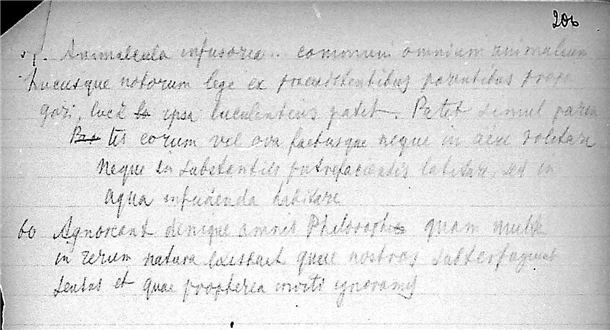 206
5 . Animalcula infusorea .. communi omnium animalium
hucusque notorum lege ex praeexistentibus parentibus propa
gari, luce ipsa luculentius patet. Patet simul paren
tes eorum vel ova foetusque neque in aere volitare
neque in substantiis putrefaciendis latitare, sed in
aqua infundenda habitare
60 Agnoscant denique omnes Philosophi quam multa
in rerum natura existant quae nostros subterfugiunt
sensus et quae propterea inviti ignoramus